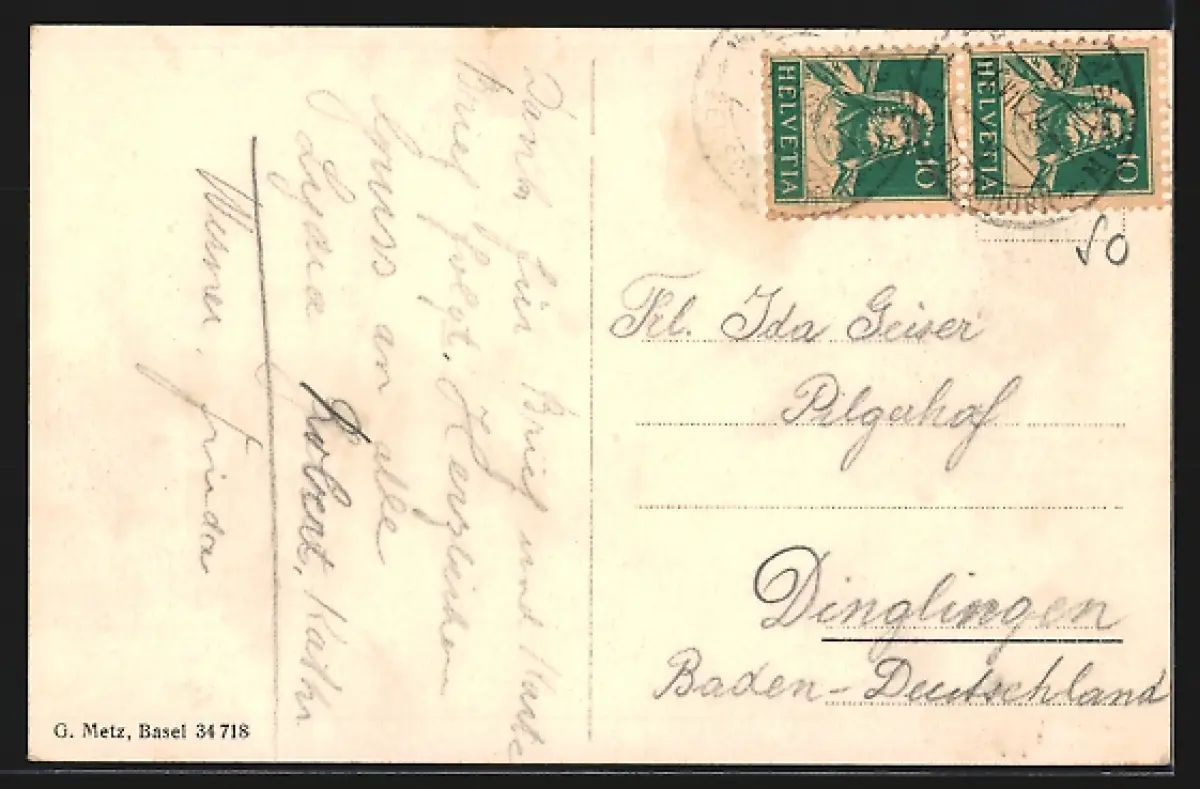 Dank für Brief und Karte
Brief folgt. Herzlichen
Gruss an alle
Lydia Robert, Kathr
Werner. Frieda
HELVETIA
10
HELVETIA
10
50
Frl. Ida Geiser
Pilgerhof
Dinglingen
Baden-Deutschland
G. Metz, Basel 34718